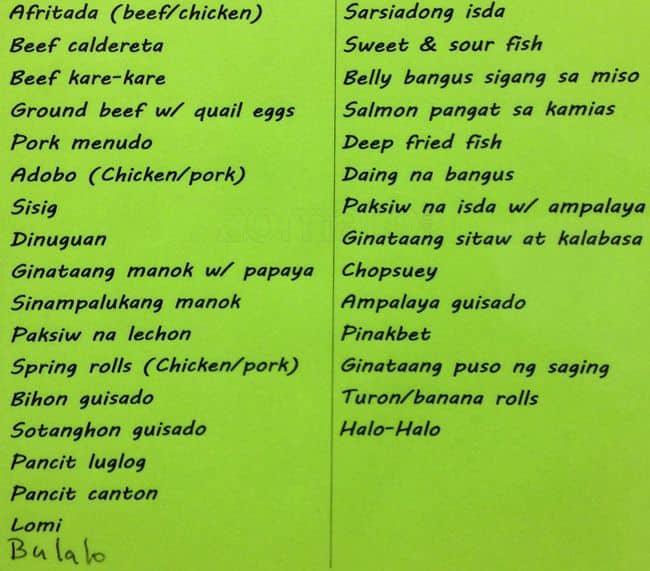 Afritada (beef/chicken)
Beef caldereta
Beef kare-kare
Ground beef w/ quail eggs
Pork menudo
Adobo (Chicken/pork)
Sisig
Dinuguan
Ginataang manok w/ papaya
Sinampalukang manok
Paksiw na lechon
Spring rolls (Chicken/pork)
Bihon guisado
Sotanghon guisado
Pancit luglog
Pancit canton
Lomi
Bulalo
Sarsiadong isda
Sweet & sour fish
Belly bangus sigang sa miso
Salmon pangat sa kamias
Deep fried fish
Daing na bangus
Paksiw na isda w/ ampalaya
Ginataang sitaw at kalabasa
Chopsuey
Ampalaya guisado
Pinakbet
Ginataang puso ng saging
Turon/banana rolls
Halo-Halo